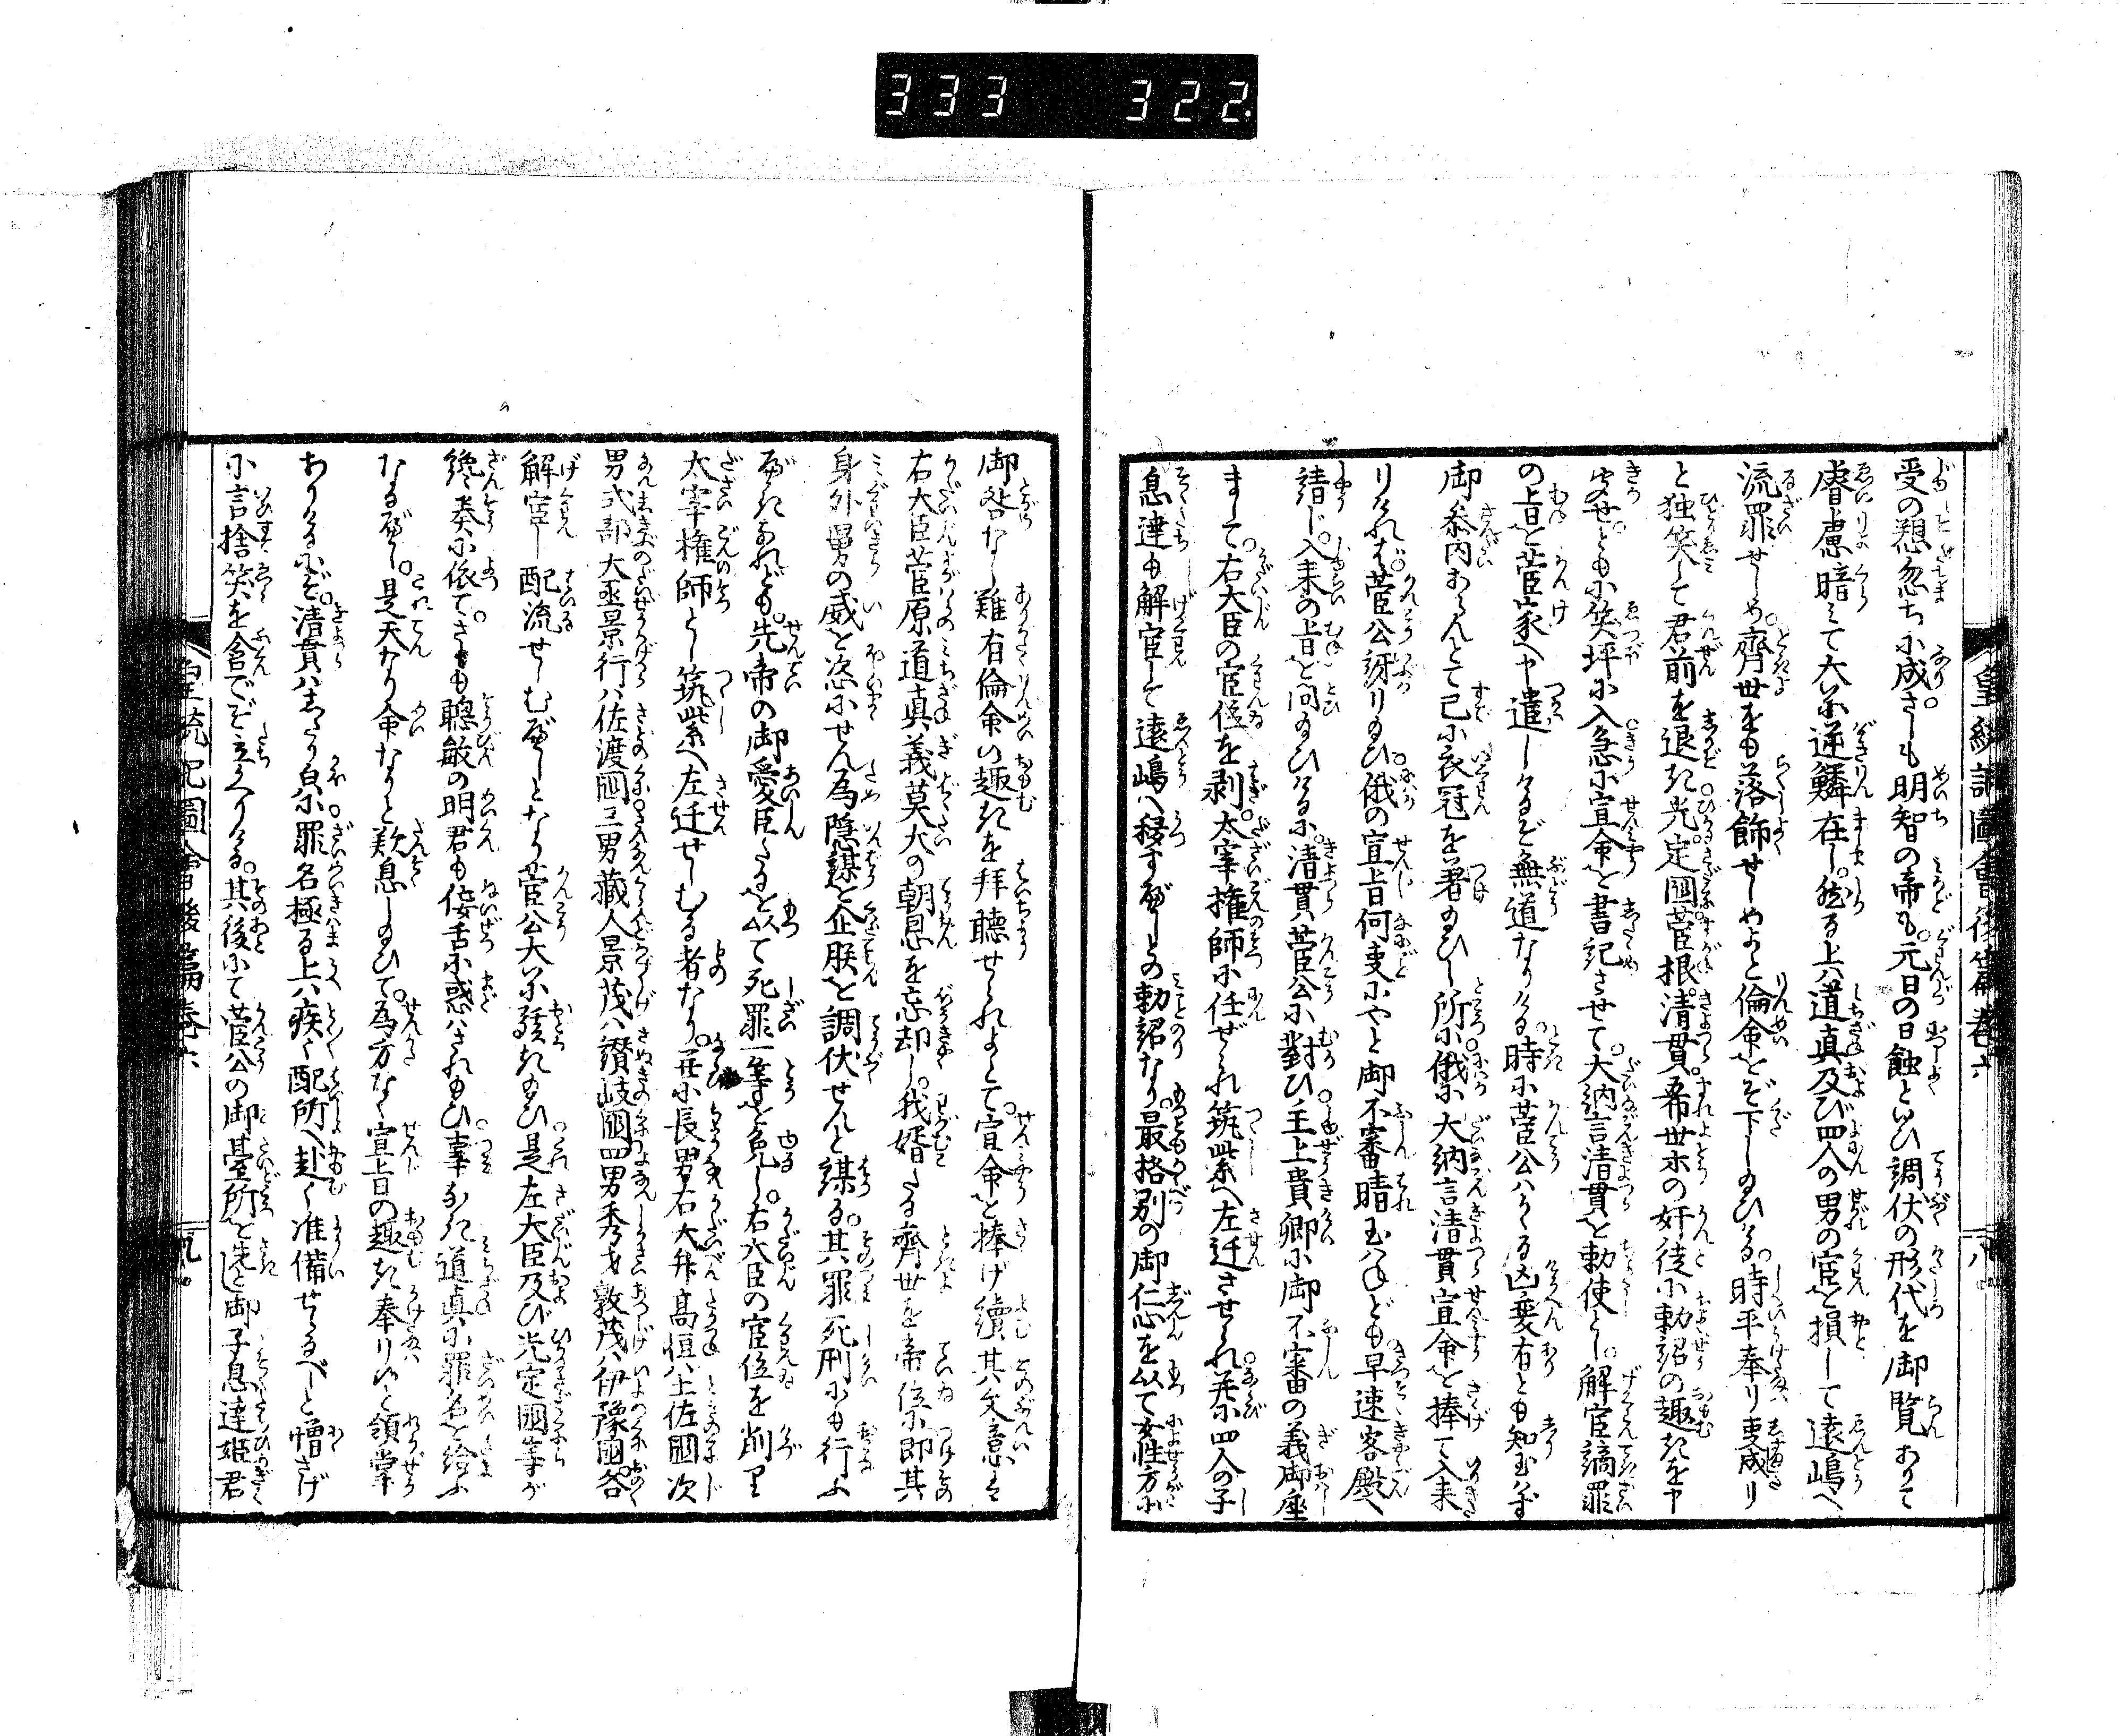 333 322.
皇統記圖會後篇卷六
八
受の想忽ちに成さしも明智の帝も。元日の日蝕といひ調伏の形代を御覧ありて
睿慮暗て大に逆鱗在し。然る上ハ道真及び四人の男の官を損して遠嶋へ
流罪せしめ。齊世をも落飾せしめよと倫命をぞ下し給ひける。時平奉り事成り
と独笑して君前を退き光定國菅根。清貫希世ホの奸徒に勅詔の趣きを申
せ。ともに笑坪に入急に宣命を書記させて。大納言清貫を勅使とし。解官謫罪
の上旨を菅家へ申遣しけるぞ無道なりける。時に菅公ハかゝる凶変有とも知玉ハず
御参内あらんとて已に衣冠を着給ひし所に。俄に大納言清貫宣命を捧て入来
りけれバ。菅公訝り給ひ。俄の宣旨何事にやと御不審晴玉ハねども早速客殿へ
請じ。入来の旨を問給ひけるに。清貫菅公に對ひ主上貴卿に御不審の義御座
まして。右大臣の官位を剥。太宰権師に任ぜられ筑紫へ左迁させられ。并に四人の子
息達も解官して遠嶋へ移すべしとの勅詔なり。最格別の御仁心を以て女性方に
御咎なし難有倫命の趣きを拝聴せられよとて。宣命を捧げ續其文意ハ
右大臣菅原道真義莫大の朝恩を忘却し。我婿たる齊世を帝位に即其
身外舅の威を恣にせん為隠謀を企朕を調伏せんと謀る。其罪死刑にも行ふ
べきなれども。先帝の御愛臣たるを以て死罪一等を免し。右大臣の官位を削り
太宰権師とし筑紫へ左迁せしむる者なり。并に長男右大弁高恒ハ土佐國次
男式部大丞景行ハ佐渡國三男藏人景茂ハ讃岐國四男秀才敦茂ハ伊豫國。各
解官し配流せしむべしとなり菅公大に駭き給ひ是左大臣及び光定國等が
讒奏に依て。さしも聰敏の明君も侫舌に惑ハされ給ひ。事なき道真に罪名を給ふ
なるべし。是天なり命なりと歎息し給ひて。為方なく宣旨の趣き奉り候と領掌
ありけるにぞ。清貫ハしたり㒵に罪名極る上ハ疾く配所へ赴く准備せらるべしと憎さげ
に言捨笑を含でぞ立かへりける。其後にて菅公の御臺所を先とし御子息達姫君
皇統記圖會後篇卷六
九